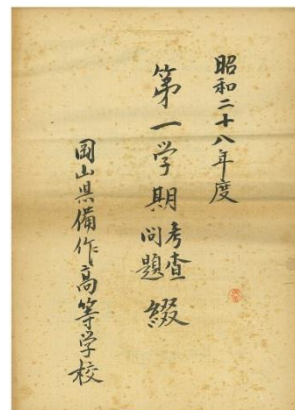 昭和二十八年度
第一学期考査問題綴
岡山県備作高等学校